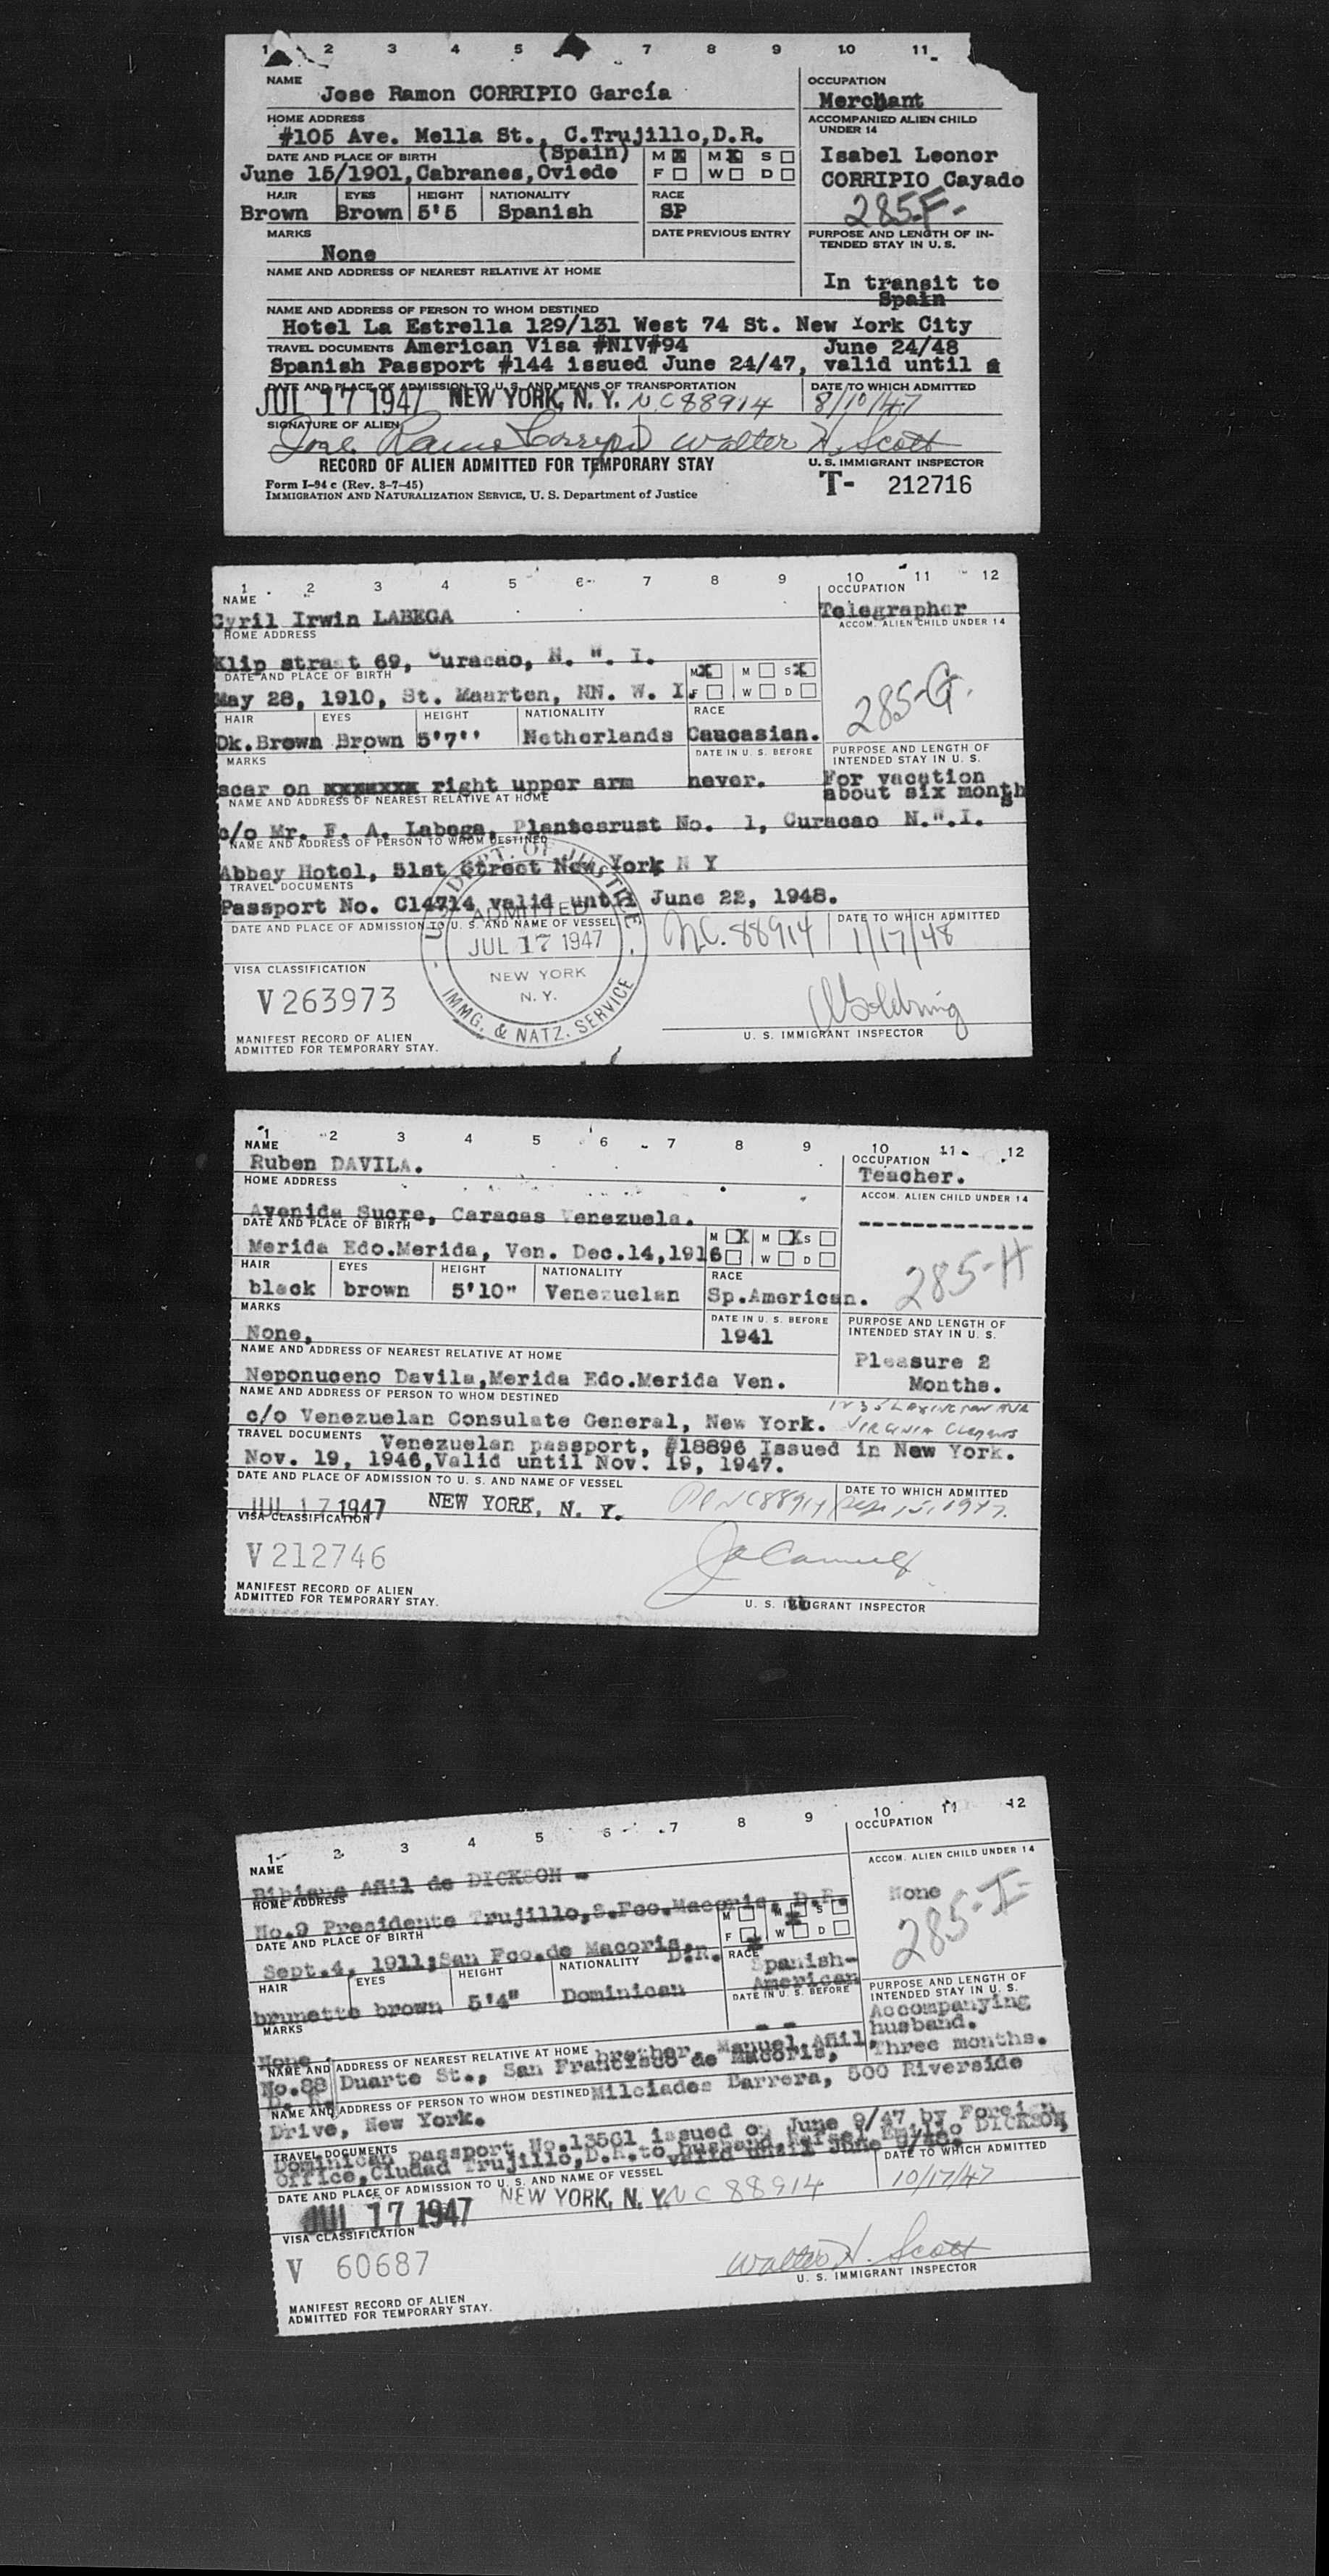 1 2 3 4 5 7 8 9 10 11
NAME
Jose Ramon CORRIPIO García
OCCUPATION
Merchant
HOME ADDRESS
#105 Ave. Mella St., C.Trujillo,D.R.
ACCOMPANIED ALIEN CHILD UNDER 14
Isabel Leonor
CORRIPIO Cayado
285F-
DATE AND PLACE OF BIRTH (Spain)
June 15/1901,Cabranes,Oviedo
M X M X S
F W D
HAIR EYES HEIGHT NATIONALITY RACE
Brown Brown 5'5 Spanish SP
MARKS
None
DATE PREVIOUS ENTRY
PURPOSE AND LENGTH OF IN-
TENDED STAY IN U. S.
In transit to
Spain
NAME AND ADDRESS OF NEAREST RELATIVE AT HOME
NAME AND ADDRESS OF PERSON TO WHOM DESTINED
Hotel La Estrella 129/131 West 74 St. New York City
TRAVEL DOCUMENTS American Visa #NIV#94 June 24/48
Spanish Passport #144 issued June 24/47, valid until
DATE AND PLACE OF ADMISSION TO U. S. AND MEANS OF TRANSPORTATION
DATE TO WHICH ADMITTED
JUL 17 1947 NEW YORK, N. Y. NC 88914 8/10/47
SIGNATURE OF ALIEN
Jose Ramon Corripio Walter H. Scott
RECORD OF ALIEN ADMITTED FOR TEMPORARY STAY
U. S. IMMIGRANT INSPECTOR
Form I-94 c (Rev. 3-7-45)
IMMIGRATION AND NATURALIZATION SERVICE, U. S. Department of Justice
T- 212716
1 2 3 4 5 6 7 8 9 10 11 12
NAME
Cyril Irwin LABEGA
OCCUPATION
Telegrapher
HOME ADDRESS
ACCOM. ALIEN CHILD UNDER 14
Klip straat 69, Curacao, N. W. I.
285-G.
DATE AND PLACE OF BIRTH
May 28, 1910, St. Maarten, NN. W. I.
M X M S X
F W D
HAIR EYES HEIGHT NATIONALITY RACE
Dk.Brown Brown 5'7'' Netherlands Caucasian.
MARKS
DATE IN U. S. BEFORE
PURPOSE AND LENGTH OF
INTENDED STAY IN U. S.
scar on xxxxxxx right upper arm never.
For vacation
about six months
NAME AND ADDRESS OF NEAREST RELATIVE AT HOME
c/o Mr. F. A. Labega, Plantesrust No. 1, Curacao N.W.I.
NAME AND ADDRESS OF PERSON TO WHOM DESTINED
Abbey Hotel, 51st Street New York N Y
TRAVEL DOCUMENTS
Passport No. C14714 valid until June 22, 1948.
DATE AND PLACE OF ADMISSION TO U. S. AND NAME OF VESSEL
DATE TO WHICH ADMITTED
U. S. DEPT. OF JUSTICE
ADMITTED
JUL 17 1947
NEW YORK
N. Y.
IMMG. & NATZ. SERVICE
N.C. 88914 1/17/48
VISA CLASSIFICATION
V 263973
U. S. IMMIGRANT INSPECTOR
MANIFEST RECORD OF ALIEN
ADMITTED FOR TEMPORARY STAY.
1 2 3 4 5 6 7 8 9 10 11 12
NAME
Ruben DAVILA.
OCCUPATION
Teacher.
HOME ADDRESS
ACCOM. ALIEN CHILD UNDER 14
-------------
Avenida Sucre, Caracas Venezuela.
DATE AND PLACE OF BIRTH
Merida Edo.Merida, Ven. Dec.14,1916
M X M X S
W D
285-H
HAIR EYES HEIGHT NATIONALITY RACE
black brown 5'10" Venezuelan Sp.American.
MARKS
DATE IN U. S. BEFORE
PURPOSE AND LENGTH OF
INTENDED STAY IN U. S.
None, 1941
Pleasure 2
Months.
NAME AND ADDRESS OF NEAREST RELATIVE AT HOME
Neponuceno Davila,Merida Edo.Merida Ven.
NAME AND ADDRESS OF PERSON TO WHOM DESTINED
c/o Venezuelan Consulate General, New York.
TRAVEL DOCUMENTS Venezuelan passport, #18896 Issued in New York.
Nov. 19, 1946,Valid until Nov. 19, 1947.
DATE AND PLACE OF ADMISSION TO U. S. AND NAME OF VESSEL
DATE TO WHICH ADMITTED
JUL 17 1947 NEW YORK, N. Y. NC 88914 Sep. 15, 1947.
VISA CLASSIFICATION
V 212746
U. S. IMMIGRANT INSPECTOR
MANIFEST RECORD OF ALIEN
ADMITTED FOR TEMPORARY STAY.
1 2 3 4 5 6 7 8 9 10 11 12
NAME
Bibiana Añil de DICKSON -
OCCUPATION
HOME ADDRESS
ACCOM. ALIEN CHILD UNDER 14
None
285-I-
No.9 Presidente Trujillo,S.Fco.Macoris, D.R.
DATE AND PLACE OF BIRTH
Sept.4, 1911;San Fco.de Macoris, D.R.
M M X S
F X W D
HAIR EYES HEIGHT NATIONALITY RACE
brunette brown 5'4" Dominican Spanish-
American
MARKS
None
DATE IN U. S. BEFORE
- -
PURPOSE AND LENGTH OF
INTENDED STAY IN U. S.
Accompanying
husband.
Three months.
NAME AND ADDRESS OF NEAREST RELATIVE AT HOME brother, Manuel Añil
No.88 Duarte St., San Francisco de Macoris,
D. R.
NAME AND ADDRESS OF PERSON TO WHOM DESTINED Milciades Barrera, 500 Riverside
Drive, New York.
TRAVEL DOCUMENTS
Dominican passport No.13561 issued on June 9/47 by Foreign
Office,Ciudad Trujillo,D.R.to husband Rafael Emilio DICKSON,
valid until June 9/48.
DATE AND PLACE OF ADMISSION TO U. S. AND NAME OF VESSEL
DATE TO WHICH ADMITTED
JUL 17 1947 NEW YORK, N. Y. NC 88914 10/17/47
VISA CLASSIFICATION
V 60687
Walter H. Scott
U. S. IMMIGRANT INSPECTOR
MANIFEST RECORD OF ALIEN
ADMITTED FOR TEMPORARY STAY.